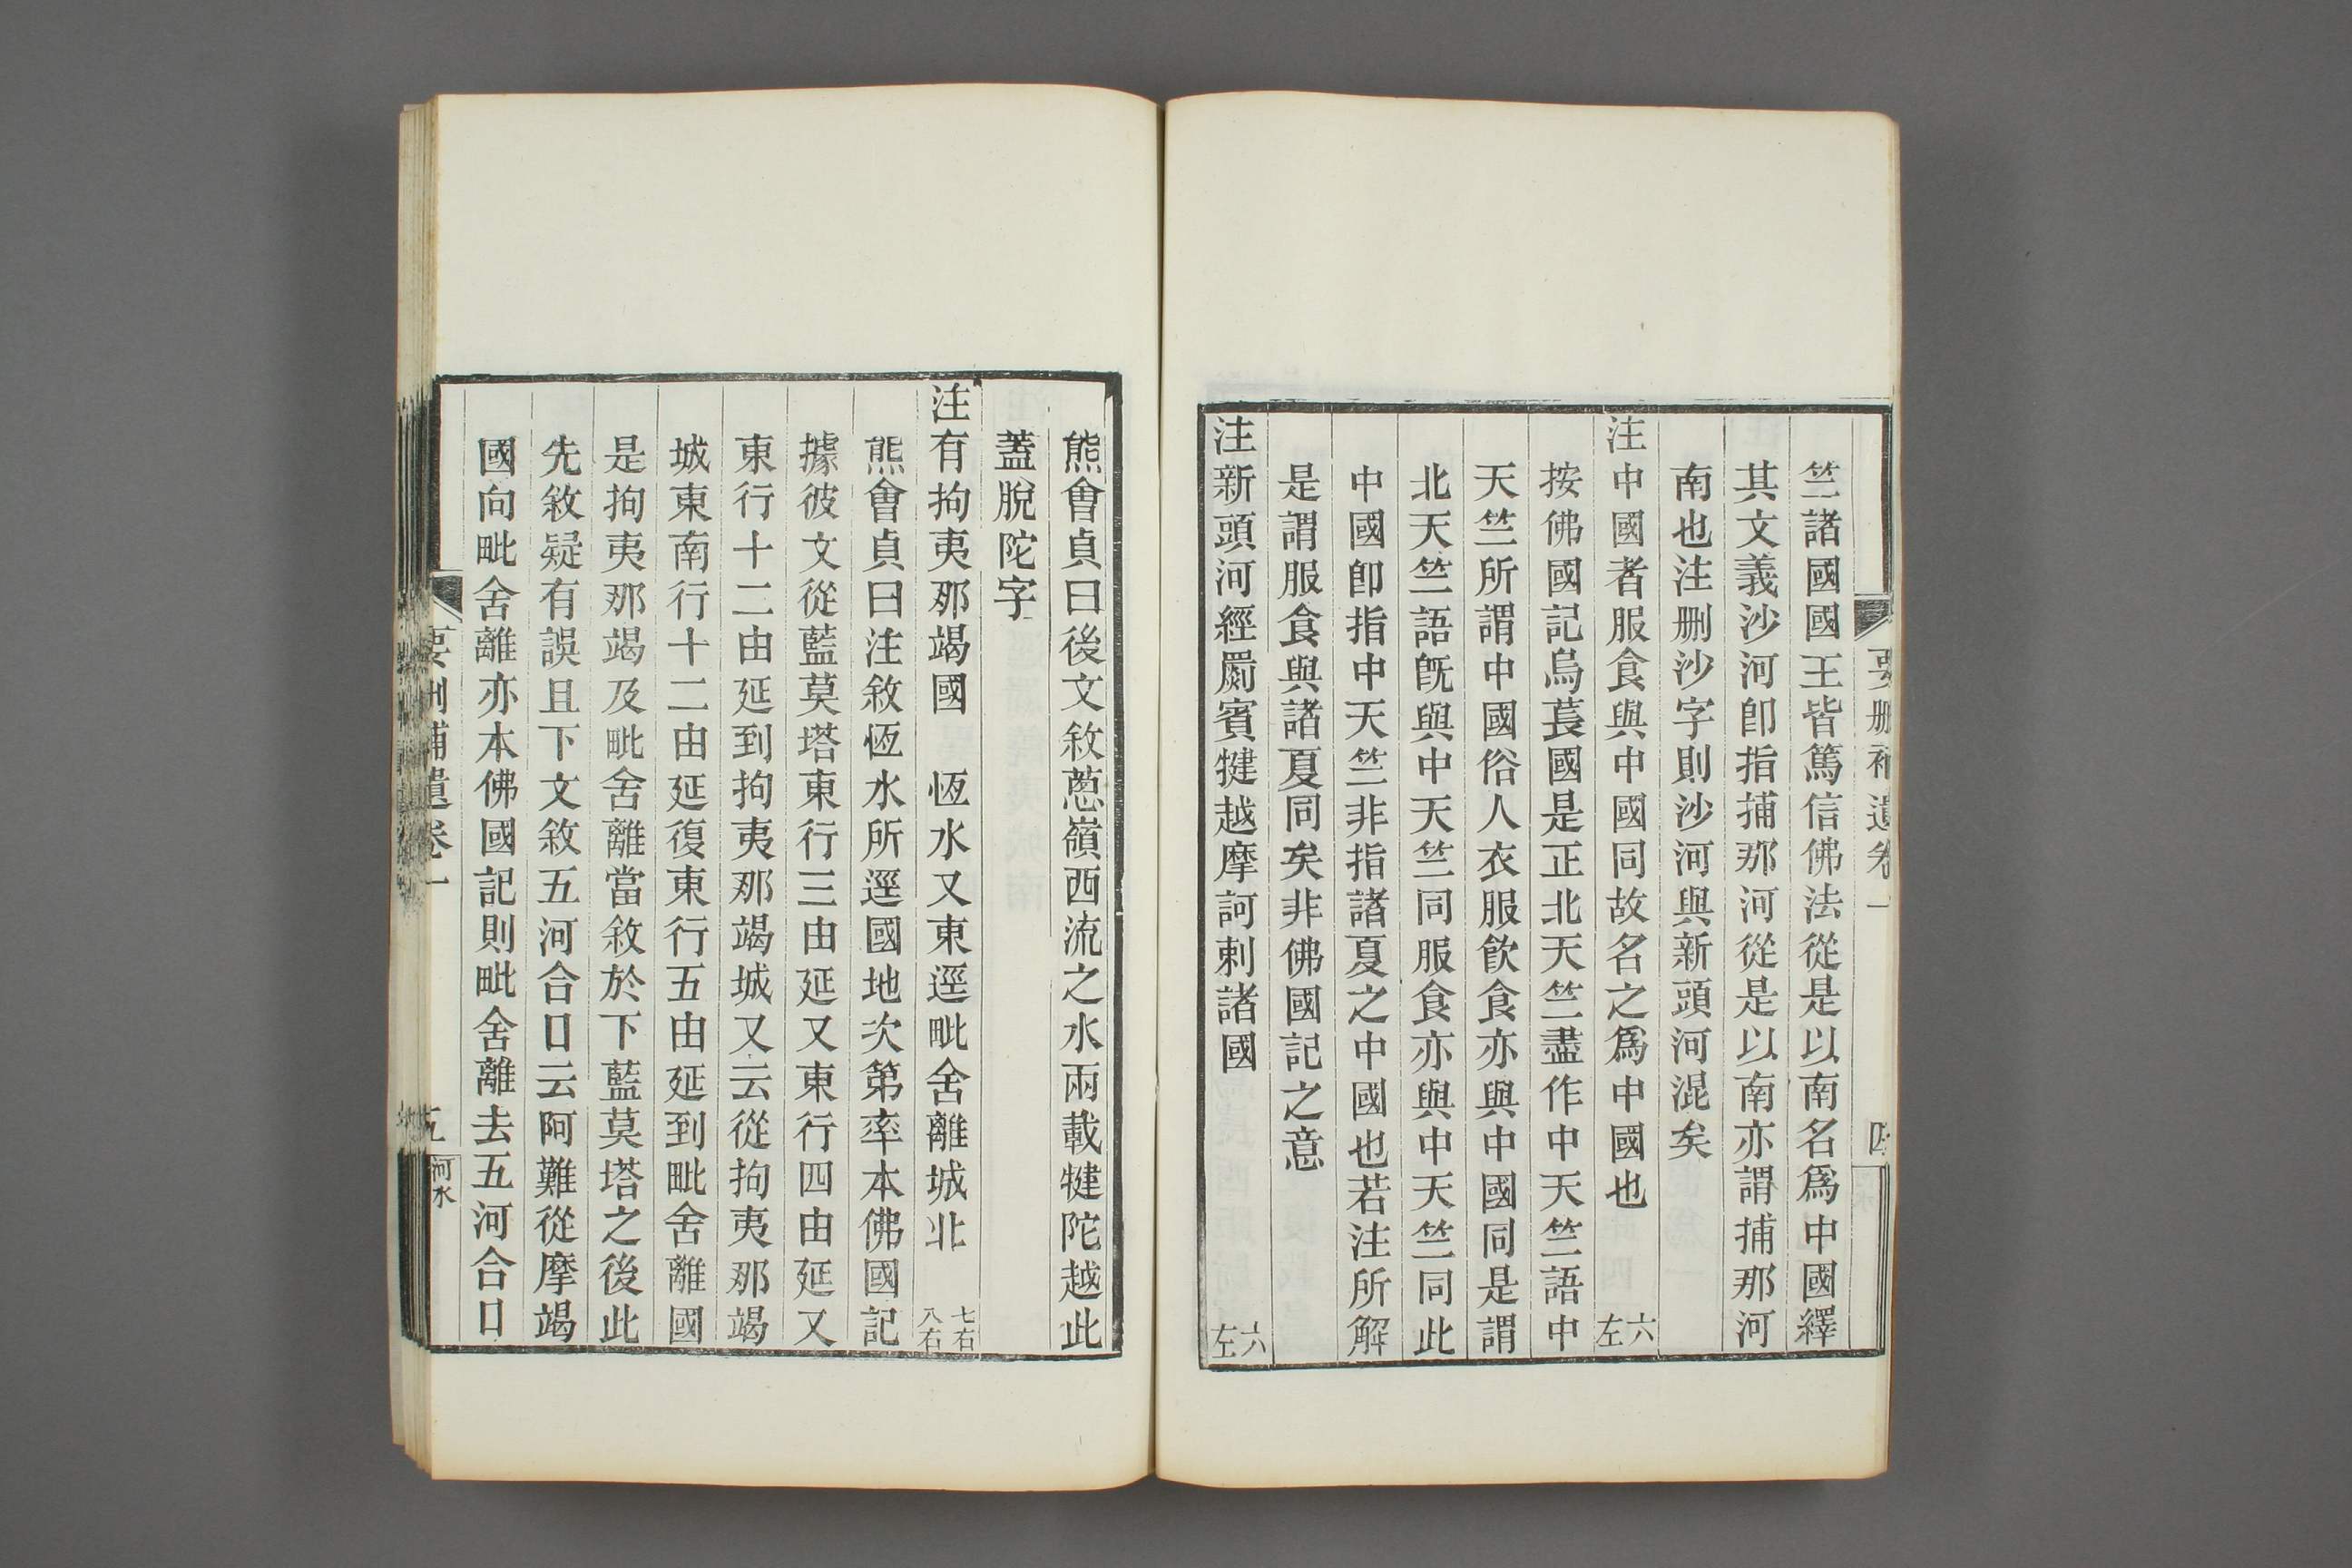 要删補遺卷一 四
竺諸國國王皆篤信佛法從是以南名爲中國繹
其文義沙河卽指捕那河從是以南亦謂捕那河
南也注删沙字則沙河與新頭河混矣
注中國者服食與中國同故名之爲中國也 六左
按佛國記烏萇國是正北天竺盡作中天竺語中
天竺所謂中國俗人衣服飮食亦與中國同是謂
北天竺語旣與中天竺同服食亦與中天竺同此
中國卽指中天竺非指諸夏之中國也若注所解
是謂服食與諸夏同矣非佛國記之意
注新頭河經罽賓犍越摩訶剌諸國 六左
熊會貞曰後文敘蔥嶺西流之水兩載犍陀越此
蓋脫陀字
注有拘夷那竭國 恆水又東逕毗舍離城北 七右八右
熊會貞曰注敘恆水所逕國地次第率本佛國記
據彼文從藍莫塔東行三由延又東行四由延又
東行十二由延到拘夷那竭城又云從拘夷那竭
城東南行十二由延復東行五由延到毗舍離國
是拘夷那竭及毗舍離當敘於下藍莫塔之後此
先敘疑有誤且下文敘五河合口云阿難從摩竭
國向毗舍離亦本佛國記則毗舍離去五河合口
要删補遺卷一 五 河水